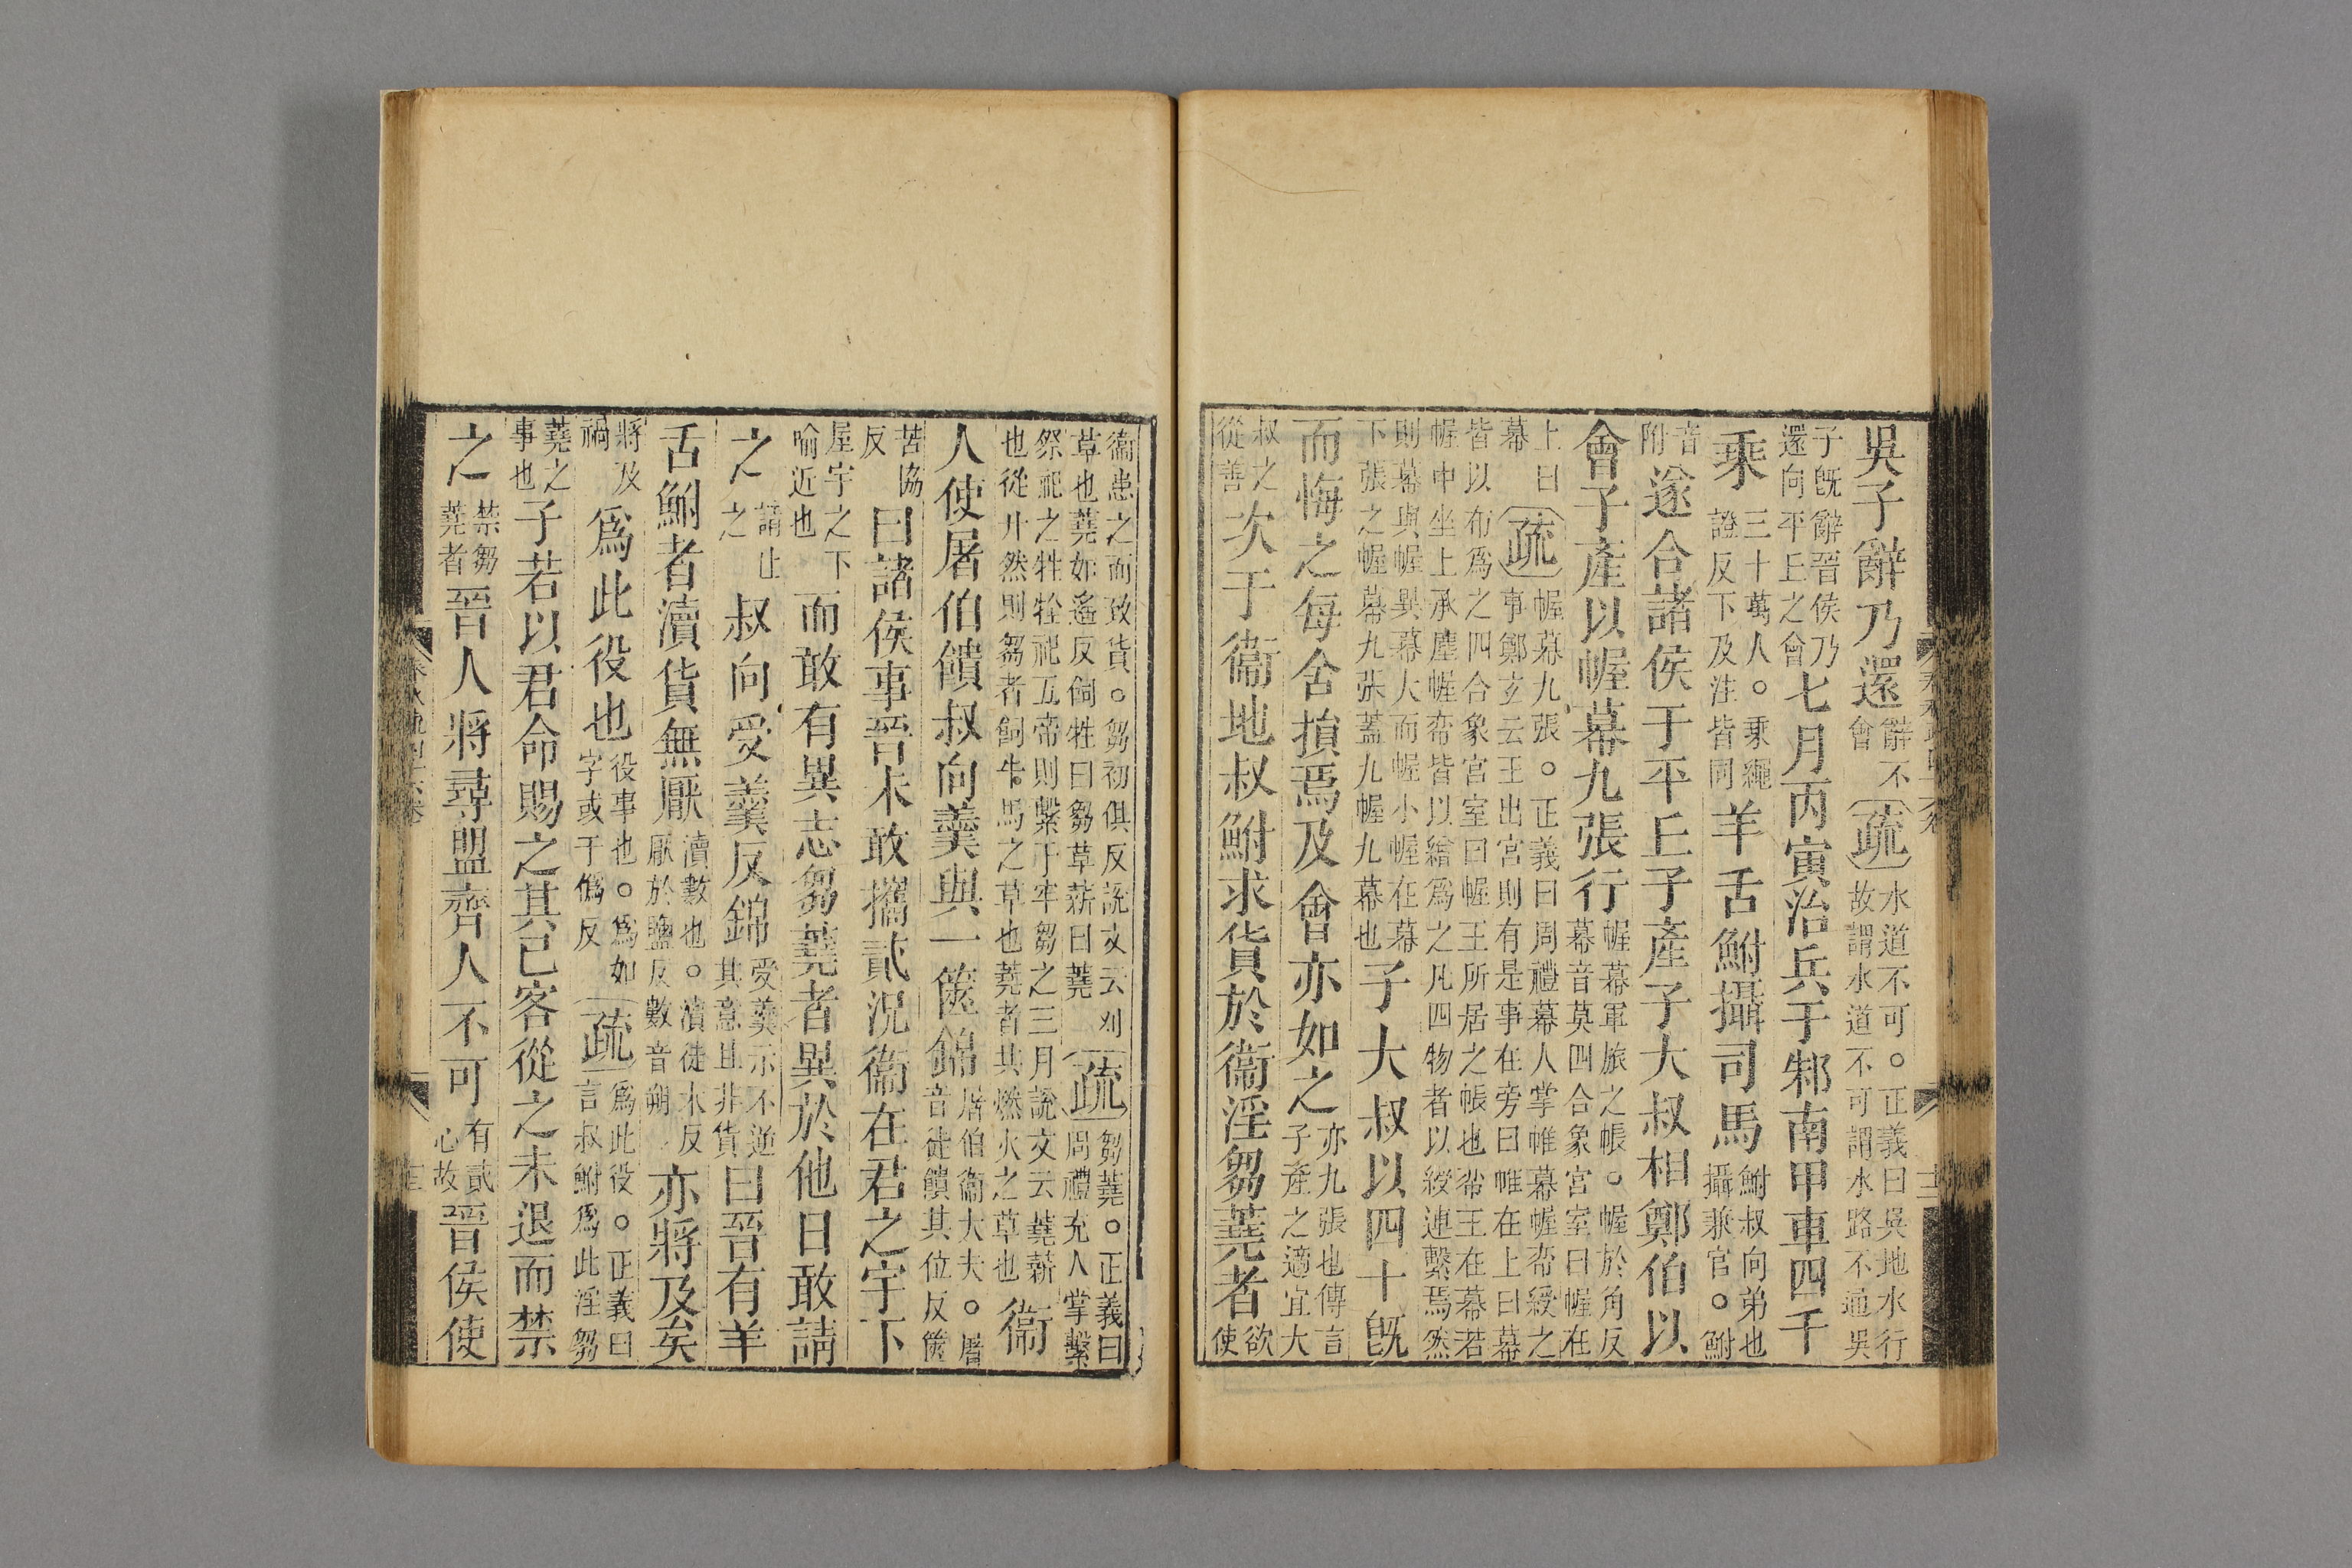 吳子辭乃還辭不會疏水道不可。正義曰吳地水行故謂水道不可謂水路不通吳
子旣辭晉侯乃還向平丘之會七月丙寅治兵于邾南甲車四千
乘三十萬人。乘繩證反下及注皆同羊舌鮒攝司馬鮒叔向弟也攝兼官。鮒
音附遂合諸侯于平丘子產子大叔相鄭伯以
會子產以幄幕九張行幄幕軍旅之帳。幄於角反幕音莫四合象宮室曰幄在
上曰幕疏幄幕九張。正義曰周禮幕人掌帷幕幄帟綬之事鄭玄云王出宮則有是事在旁曰帷在上曰幕
皆以布爲之四合象宮室曰幄王所居之帳也帟王在幕若幄中坐上承塵幄帟皆以繒爲之凡四物者以綬連繫焉然
則幕與幄異幕大而幄小幄在幕下張之幄幕九張蓋九幄九幕也子大叔以四十旣
而悔之每舍損焉及會亦如之亦九張也傳言子產之適宜大
叔之從善次于衞地叔鮒求貨於衞淫芻蕘者欲使
衞患之而致貨。芻初俱反說文云刈草也蕘如遙反飼牲曰芻草薪曰蕘疏芻蕘。正義曰周禮充人掌繫
祭祀之牲牷祀五帝則繫于牢芻之三月說文云蕘薪也從廾然則芻者飼牛馬之草也蕘者共燃火之草也衞
人使屠伯饋叔向羹與一篋錦屠伯衞大夫。屠音徒饋其位反篋
苦協反曰諸侯事晉未敢攜貳況衞在君之宇下
屋宇之下喻近也而敢有異志芻蕘者異於他日敢請
之請止之叔向受羹反錦受羹示不逆其意且非貨曰晉有羊
舌鮒者瀆貨無厭瀆數也。瀆徒木反厭於鹽反數音朔亦將及矣
將及禍爲此役也役事也。爲如字或于僞反疏爲此役。正義曰言叔鮒爲此淫芻
蕘之事也子若以君命賜之其已客從之未退而禁
之禁芻蕘者晉人將尋盟齊人不可有貳心故晉侯使